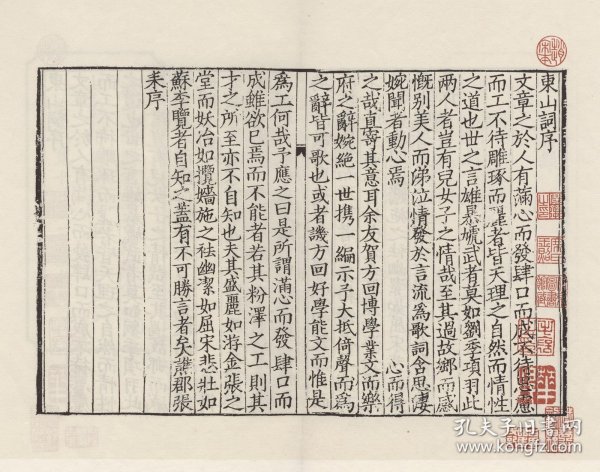 東山詞序
文章之於人有滿心而發肆口而成不待思慮
而工不待雕琢而麗者皆天理之自然而情性
之道也世之言雄暴虓武者莫如劉季項羽此
兩人者豈有兒女子之情哉至其過故鄉而感
慨别美人而涕泣情發於言流為歌詞含思淒
婉聞者動心焉 心而得
之哉直寄其意耳余友賀方回博學業文而樂
府之辭婉絕一世携一編示予大抵倚聲而為
之辭皆可歌也或者譏方回好學能文而惟是
為工何哉予應之曰是所謂滿心而發肆口而
成雖欲已焉而不能者若其粉澤之工則其
才之所至亦不自知也夫其盛麗如游金張之
堂而妖冶如攬嬙施之袪幽潔如屈宋悲壯如
蘇李覽者自知之蓋有不可勝言者矣譙郡張
耒序
孔夫子旧书网